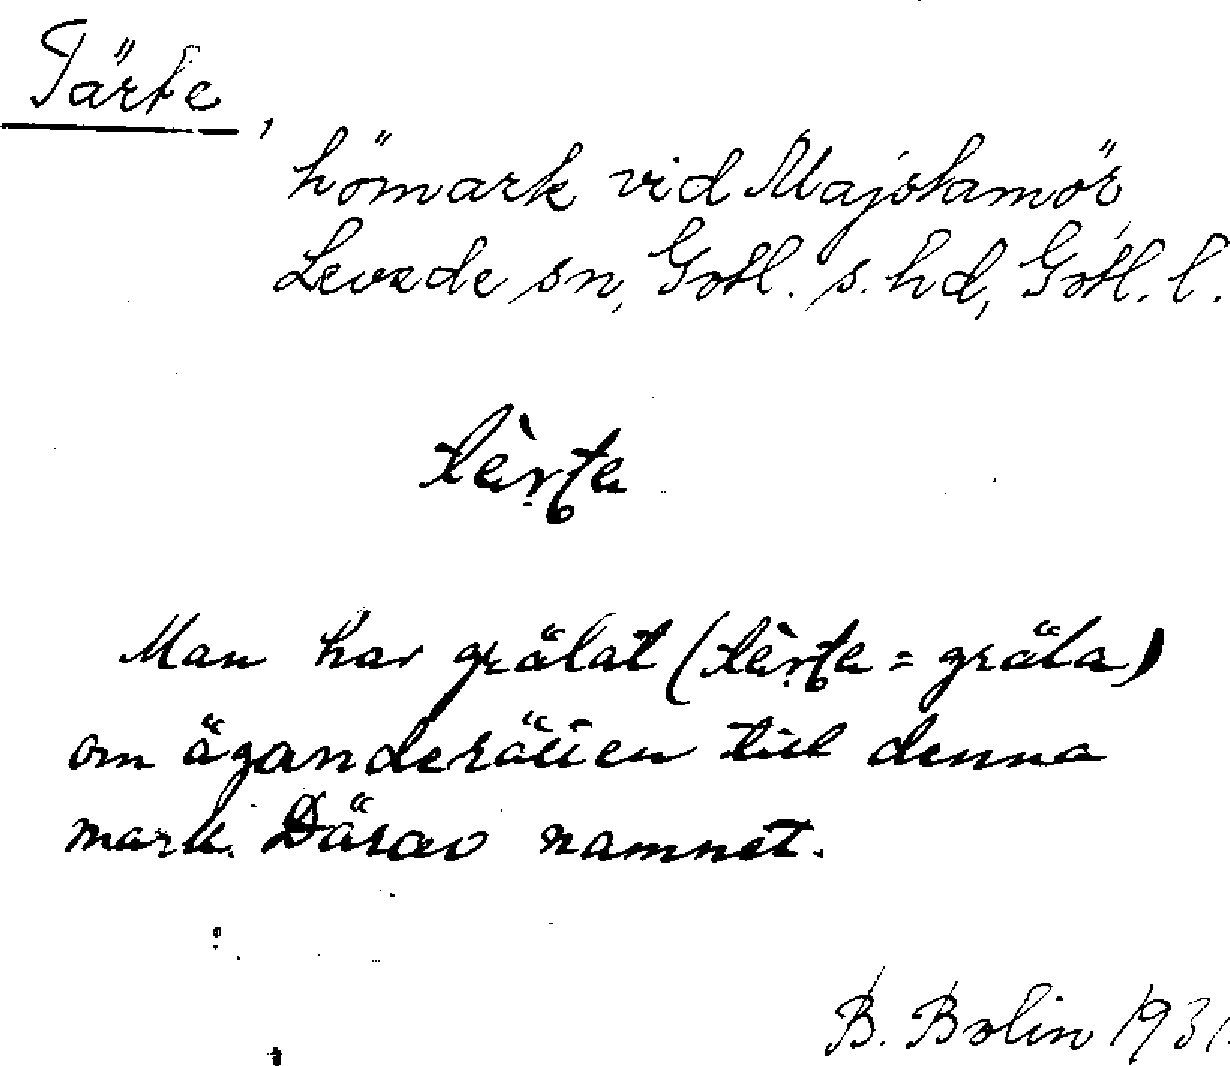 Tärte,
hömark vid Majstamör
Levede sn, Gotl. s. hd, Gotl. l.
tèrta
Man har grälat (tèrta = gräla)
om äganderätten till denna
mark. Därav namnet.
B. Bolin 1931.